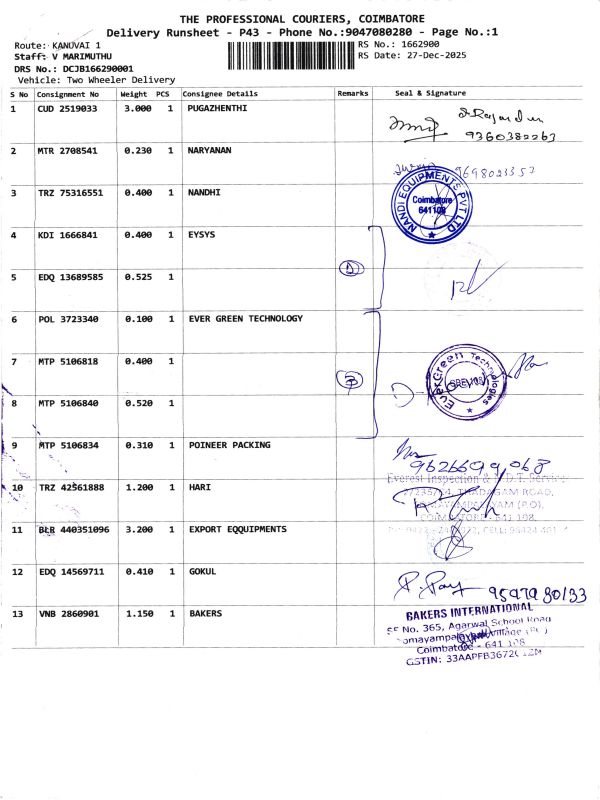 THE PROFESSIONAL COURIERS, COIMBATORE
Delivery Runsheet - P43 - Phone No.:9047080280 - Page No.:1
Route: KANUVAI 1 RS No.: 1662900
Staff: V MARIMUTHU RS Date: 27-Dec-2025
DRS No.: DCJB166290001
Vehicle: Two Wheeler Delivery
S No Consignment No Weight PCS Consignee Details Remarks Seal & Signature
1 CUD 2519033 3.000 1 PUGAZHENTHI
9360382263
2 MTR 2708541 0.230 1 NARYANAN
9698023357
3 TRZ 75316551 0.400 1 NANDHI
NANDI EQUIPMENTS PVT LTD
Coimbatore
641108
4 KDI 1666841 0.400 1 EYSYS
5 EDQ 13689585 0.525 1
6 POL 3723340 0.100 1 EVER GREEN TECHNOLOGY
7 MTP 5106818 0.400 1
EverGreen Technologies
8 MTP 5106840 0.520 1
9 MTP 5106834 0.310 1 POINEER PACKING
Everest Inspection & N.D.T. Service
10 TRZ 42561888 1.200 1 HARI
THADAGAM ROAD,
COIMBATORE - 641 108.
11 BLR 440351096 3.200 1 EXPORT EQQUIPMENTS
12 EDQ 14569711 0.410 1 GOKUL
13 VNB 2860901 1.150 1 BAKERS
BAKERS INTERNATIONAL
SF No. 365, Agarwal School Road
Coimbatore - 641 108